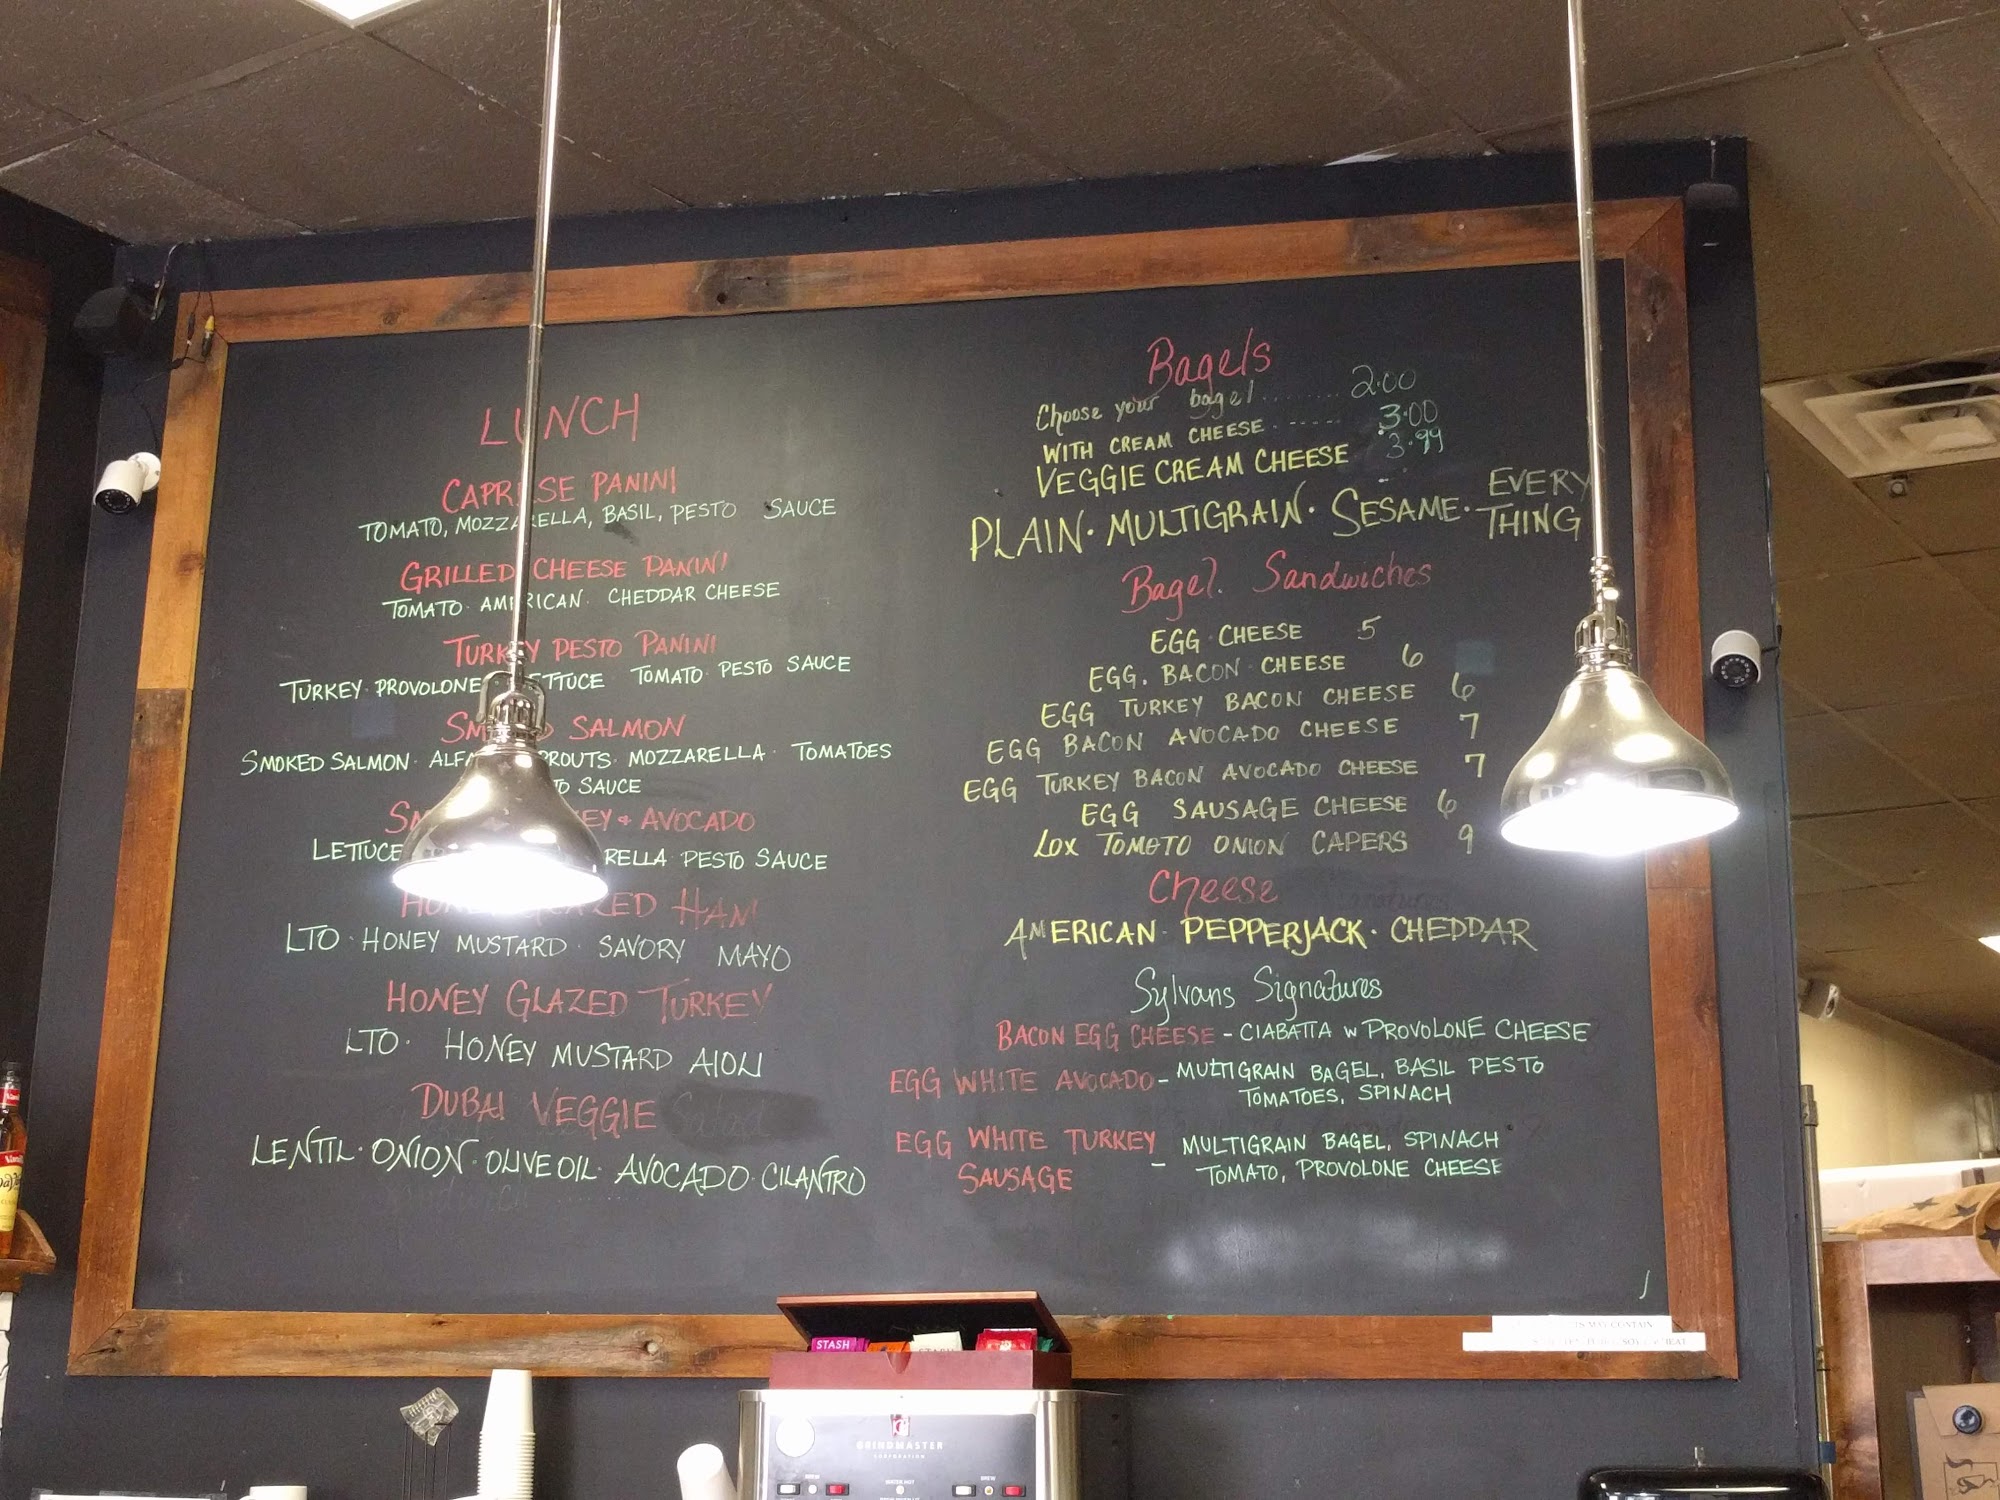 LUNCH
CAPRESE PANINI
TOMATO, MOZZARELLA, BASIL, PESTO SAUCE
GRILLED CHEESE PANINI
TOMATO · AMERICAN · CHEDDAR CHEESE
TURKEY PESTO PANINI
TURKEY · PROVOLONE · LETTUCE TOMATO PESTO SAUCE
SMOKED SALMON
SMOKED SALMON · SPROUTS · MOZZARELLA · TOMATOES
SAUCE
& AVOCADO
LETTUCE PESTO SAUCE
HONEY GLAZED HAM
LTO · HONEY MUSTARD · SAVORY MAYO
HONEY GLAZED TURKEY
LTO · HONEY MUSTARD AIOLI
DUBAI VEGGIE
LENTIL · ONION · OLIVE OIL · AVOCADO · CILANTRO
Bagels
Choose your bagel ........ 2.00
WITH CREAM CHEESE ...... 3.00
VEGGIE CREAM CHEESE 3.99
PLAIN · MULTIGRAIN · SESAME · EVERY
THING
Bagel. Sandwiches
EGG · CHEESE 5
EGG. BACON · CHEESE 6
EGG TURKEY BACON CHEESE 6
EGG BACON AVOCADO CHEESE 7
EGG TURKEY BACON AVOCADO CHEESE 7
EGG SAUSAGE CHEESE 6
LOX TOMATO ONION CAPERS 9
Cheese
AMERICAN · PEPPERJACK · CHEDDAR
Sylvans Signatures
BACON EGG CHEESE - CIABATTA W PROVOLONE CHEESE
EGG WHITE AVOCADO - MULTIGRAIN BAGEL, BASIL PESTO
TOMATOES, SPINACH
EGG WHITE TURKEY SAUSAGE - MULTIGRAIN BAGEL, SPINACH
TOMATO, PROVOLONE CHEESE
MAY CONTAIN
STASH
GRINDMASTER
CORPORATION
BREW
BREW